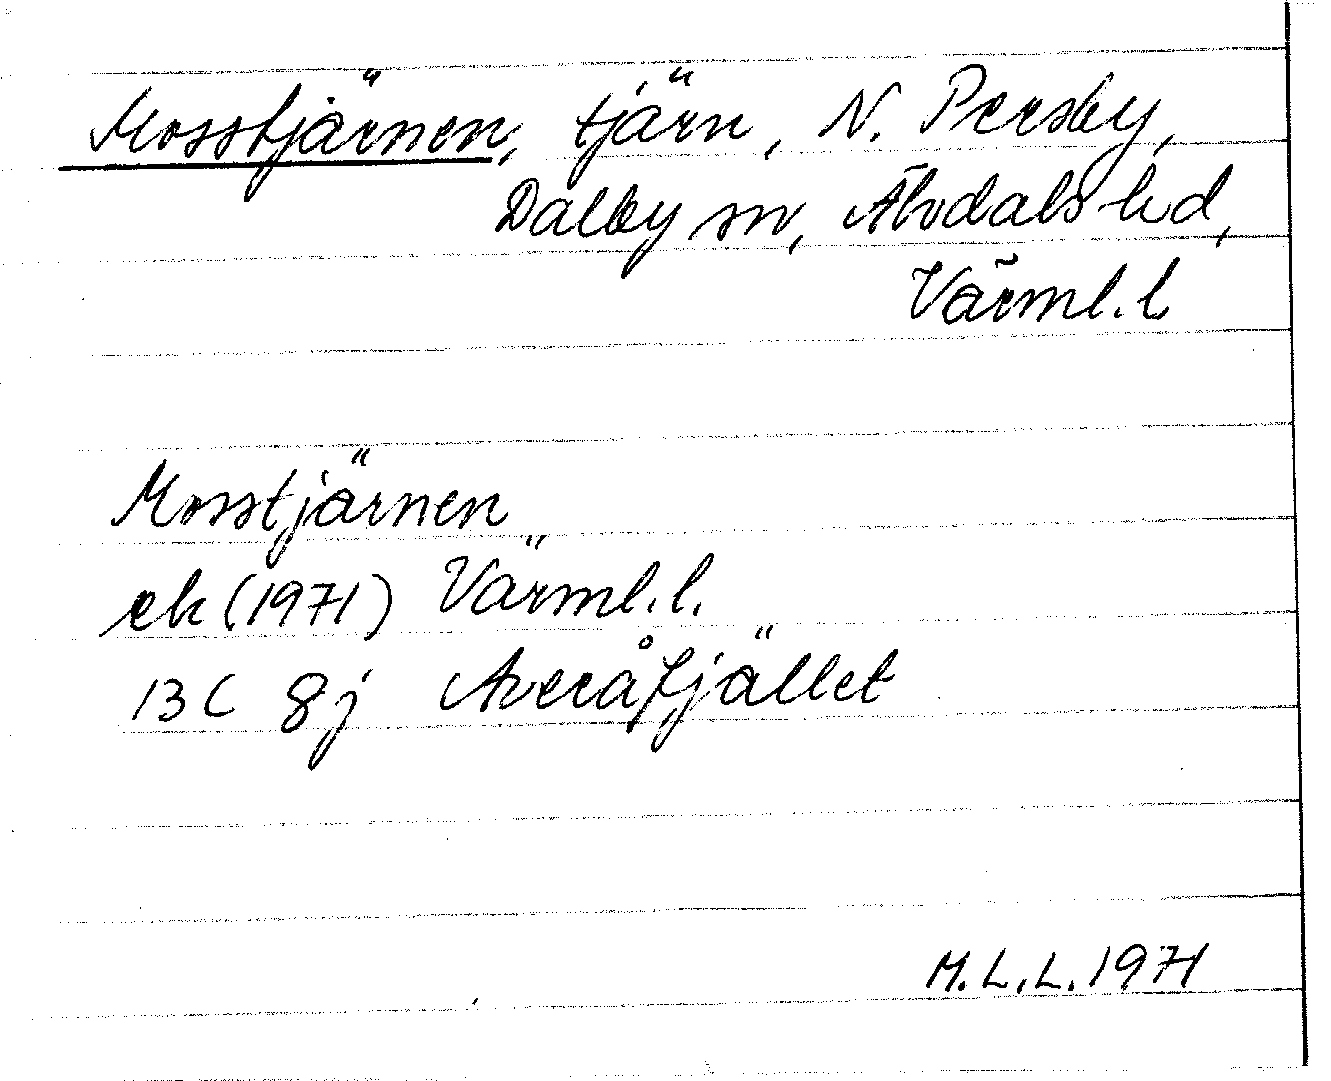 Mosstjärnen, tjärn, N. Persby,
Dalby sn, Älvdals hd,
Värml. l.
Mosstjärnen
ek (1971) Värml. l.
13C 8j Averåfjället
M.L.L. 1971